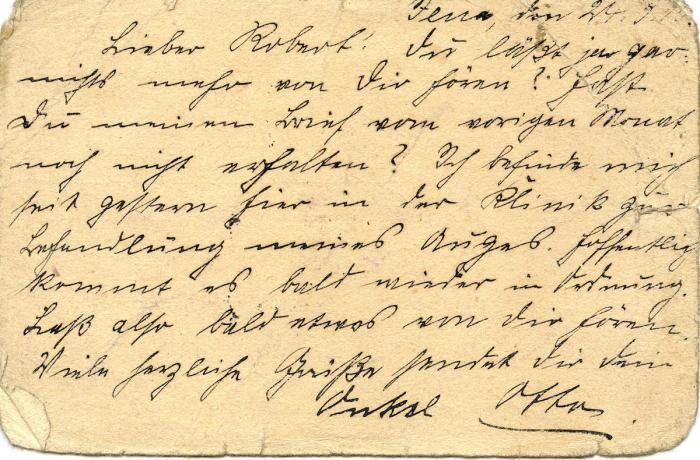 Jena, den 24.
Lieber Robert! Du läßt ja gar
nichts mehr von Dir hören? Hast
Du meinen Brief vom vorigen Monat
noch nicht erhalten? Ich befinde mich
seit gestern hier in der Klinik zur
Behandlung meines Auges. Hoffentlich
kommt es bald wieder in Ordnung.
Laß also bald etwas von dir hören.
Viele herzliche Grüße sendet dir dein
Onkel Otto.